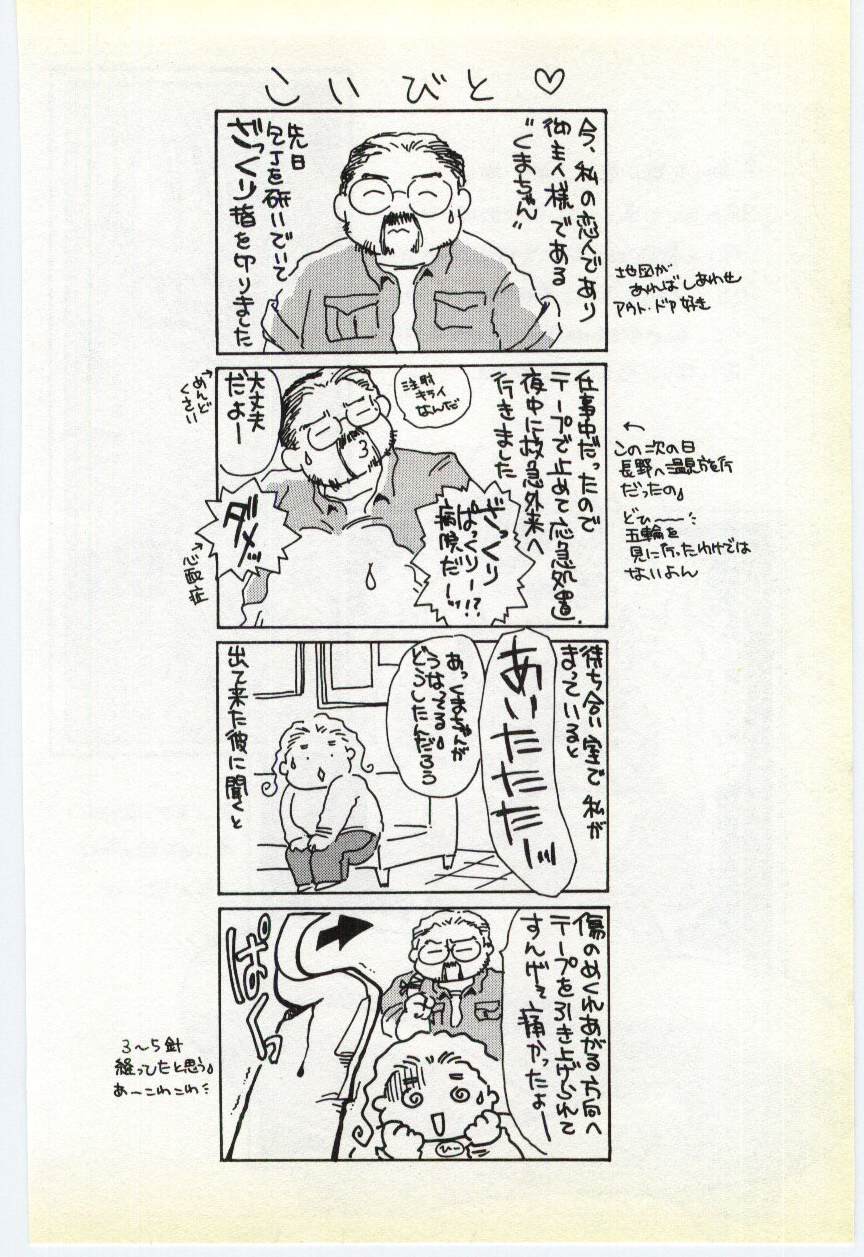 こいびと♡
今、私の恋人であり
御主人様である
"くまちゃん"
先日
包丁を研いでいて
ざっくり指を切りました
地図が
あればしあわせ
アウト・ドア好き
仕事中だったので
テープで止めて応急処置。
夜中に救急外来へ
行きました
注射
キライ
なんだ
大丈夫
だよー
めんど
くさい
ざっくり
ぱっくりー!?
病院だーッ!
ダメッ
心配症
←
この次の日
長野へ温泉旅行
だったの。
どひ〜〜
五輪を
見に行ったわけでは
ないよん
待ち合い室で 私が
まっていると
あいたたたーッ
あっくまちゃんが
うなってる。
どうしたんだろう
出て来た彼に聞くと
傷のめくれあがる方向へ
テープを引き上げられて
すんげェ痛かったよー
ぱくっ
ひー
3〜5針
縫ってたと思う。
あーこわこわ